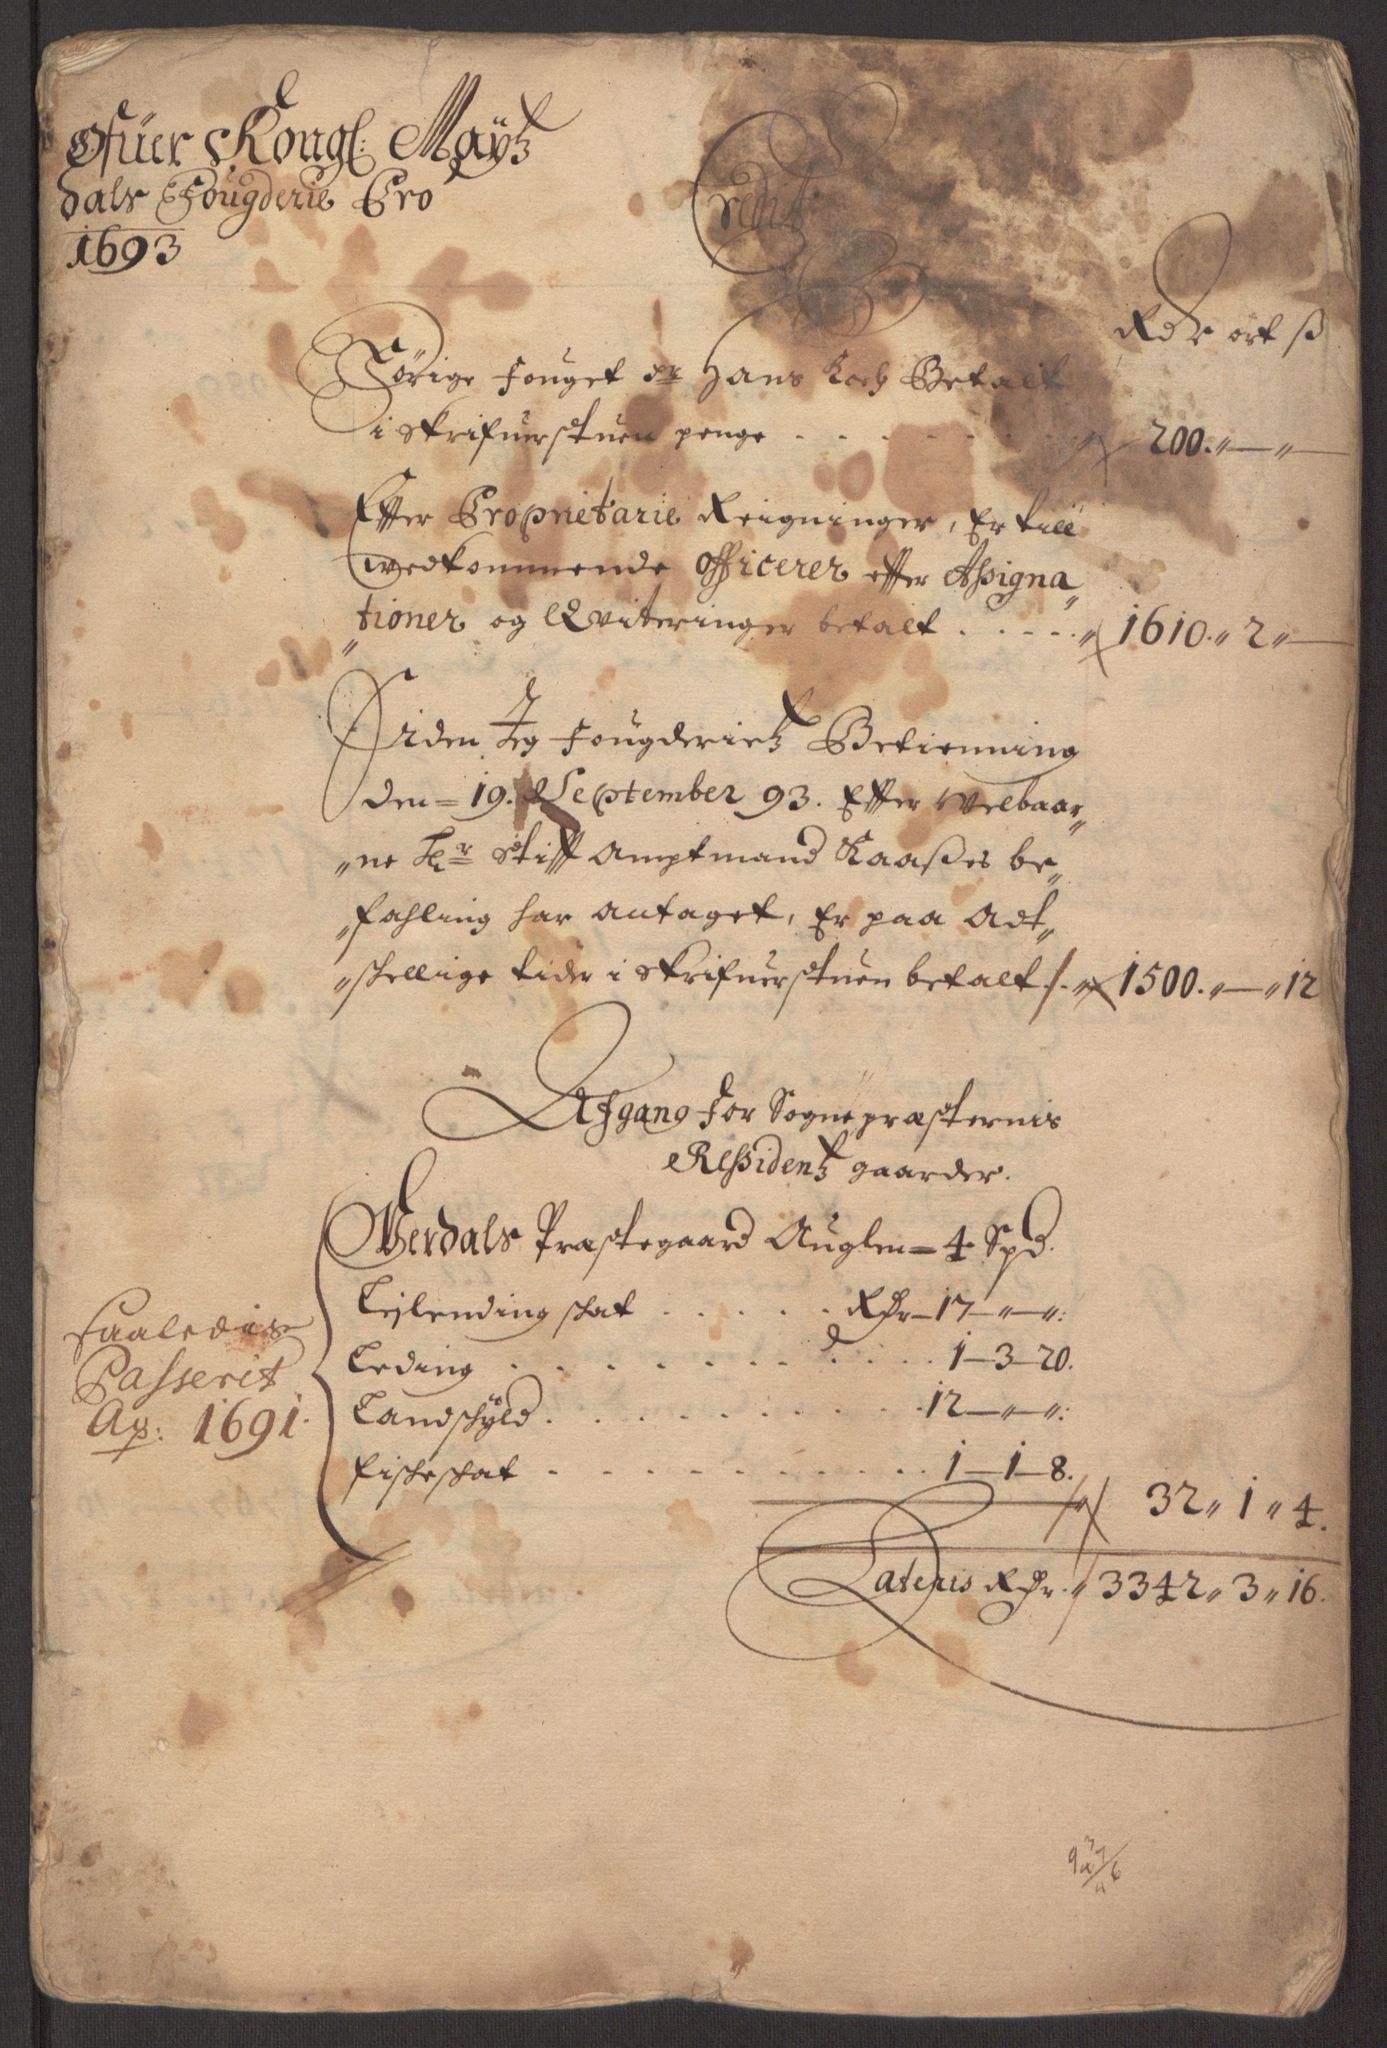 Ofuer Kongl: Maÿtz
dals Fougderie Pro
1693
Credit
Rdr ort ß
Forige fouget Sr Hans Koch Betalt
i skrifuerstuen penge . . . . . . . 200. „ — „ —
Efter Proprietarie Reigninger, Er till
wedkommende Officerer efter Assigna„
„tioner og Qviteringer betalt . . . . . 1610. „ 2 „ —
Siden Jeg fougderietz Betienning
den = 19. September 93. Efter Welbaar„
„ne Hr Stift Amptmand Kaaßes be„
„fahling har antaget, Er paa Adt„
„skellige tider i skrifuerstuen betalt . . 1500. „ — „ 12
Afgang for Sognepræsternis
Ressidentz gaarder.
Werdals Præstegaard Auglen = 4 Spd.
Leylending skat . . . . . Rdr — 17 — „ — „:
Leding . . . . . . . . . . 1 — 3 — 20.
Landschÿld . . . . . . . . . . 12 — „ — „:
fiskeskat . . . . . . . . . . 1 — 1 — 8.
Saaledis
Passerit
Ao: 1691.
32 „ 1 „ 4.
Lateris Rdr. „ 3342 „ 3 „ 16.